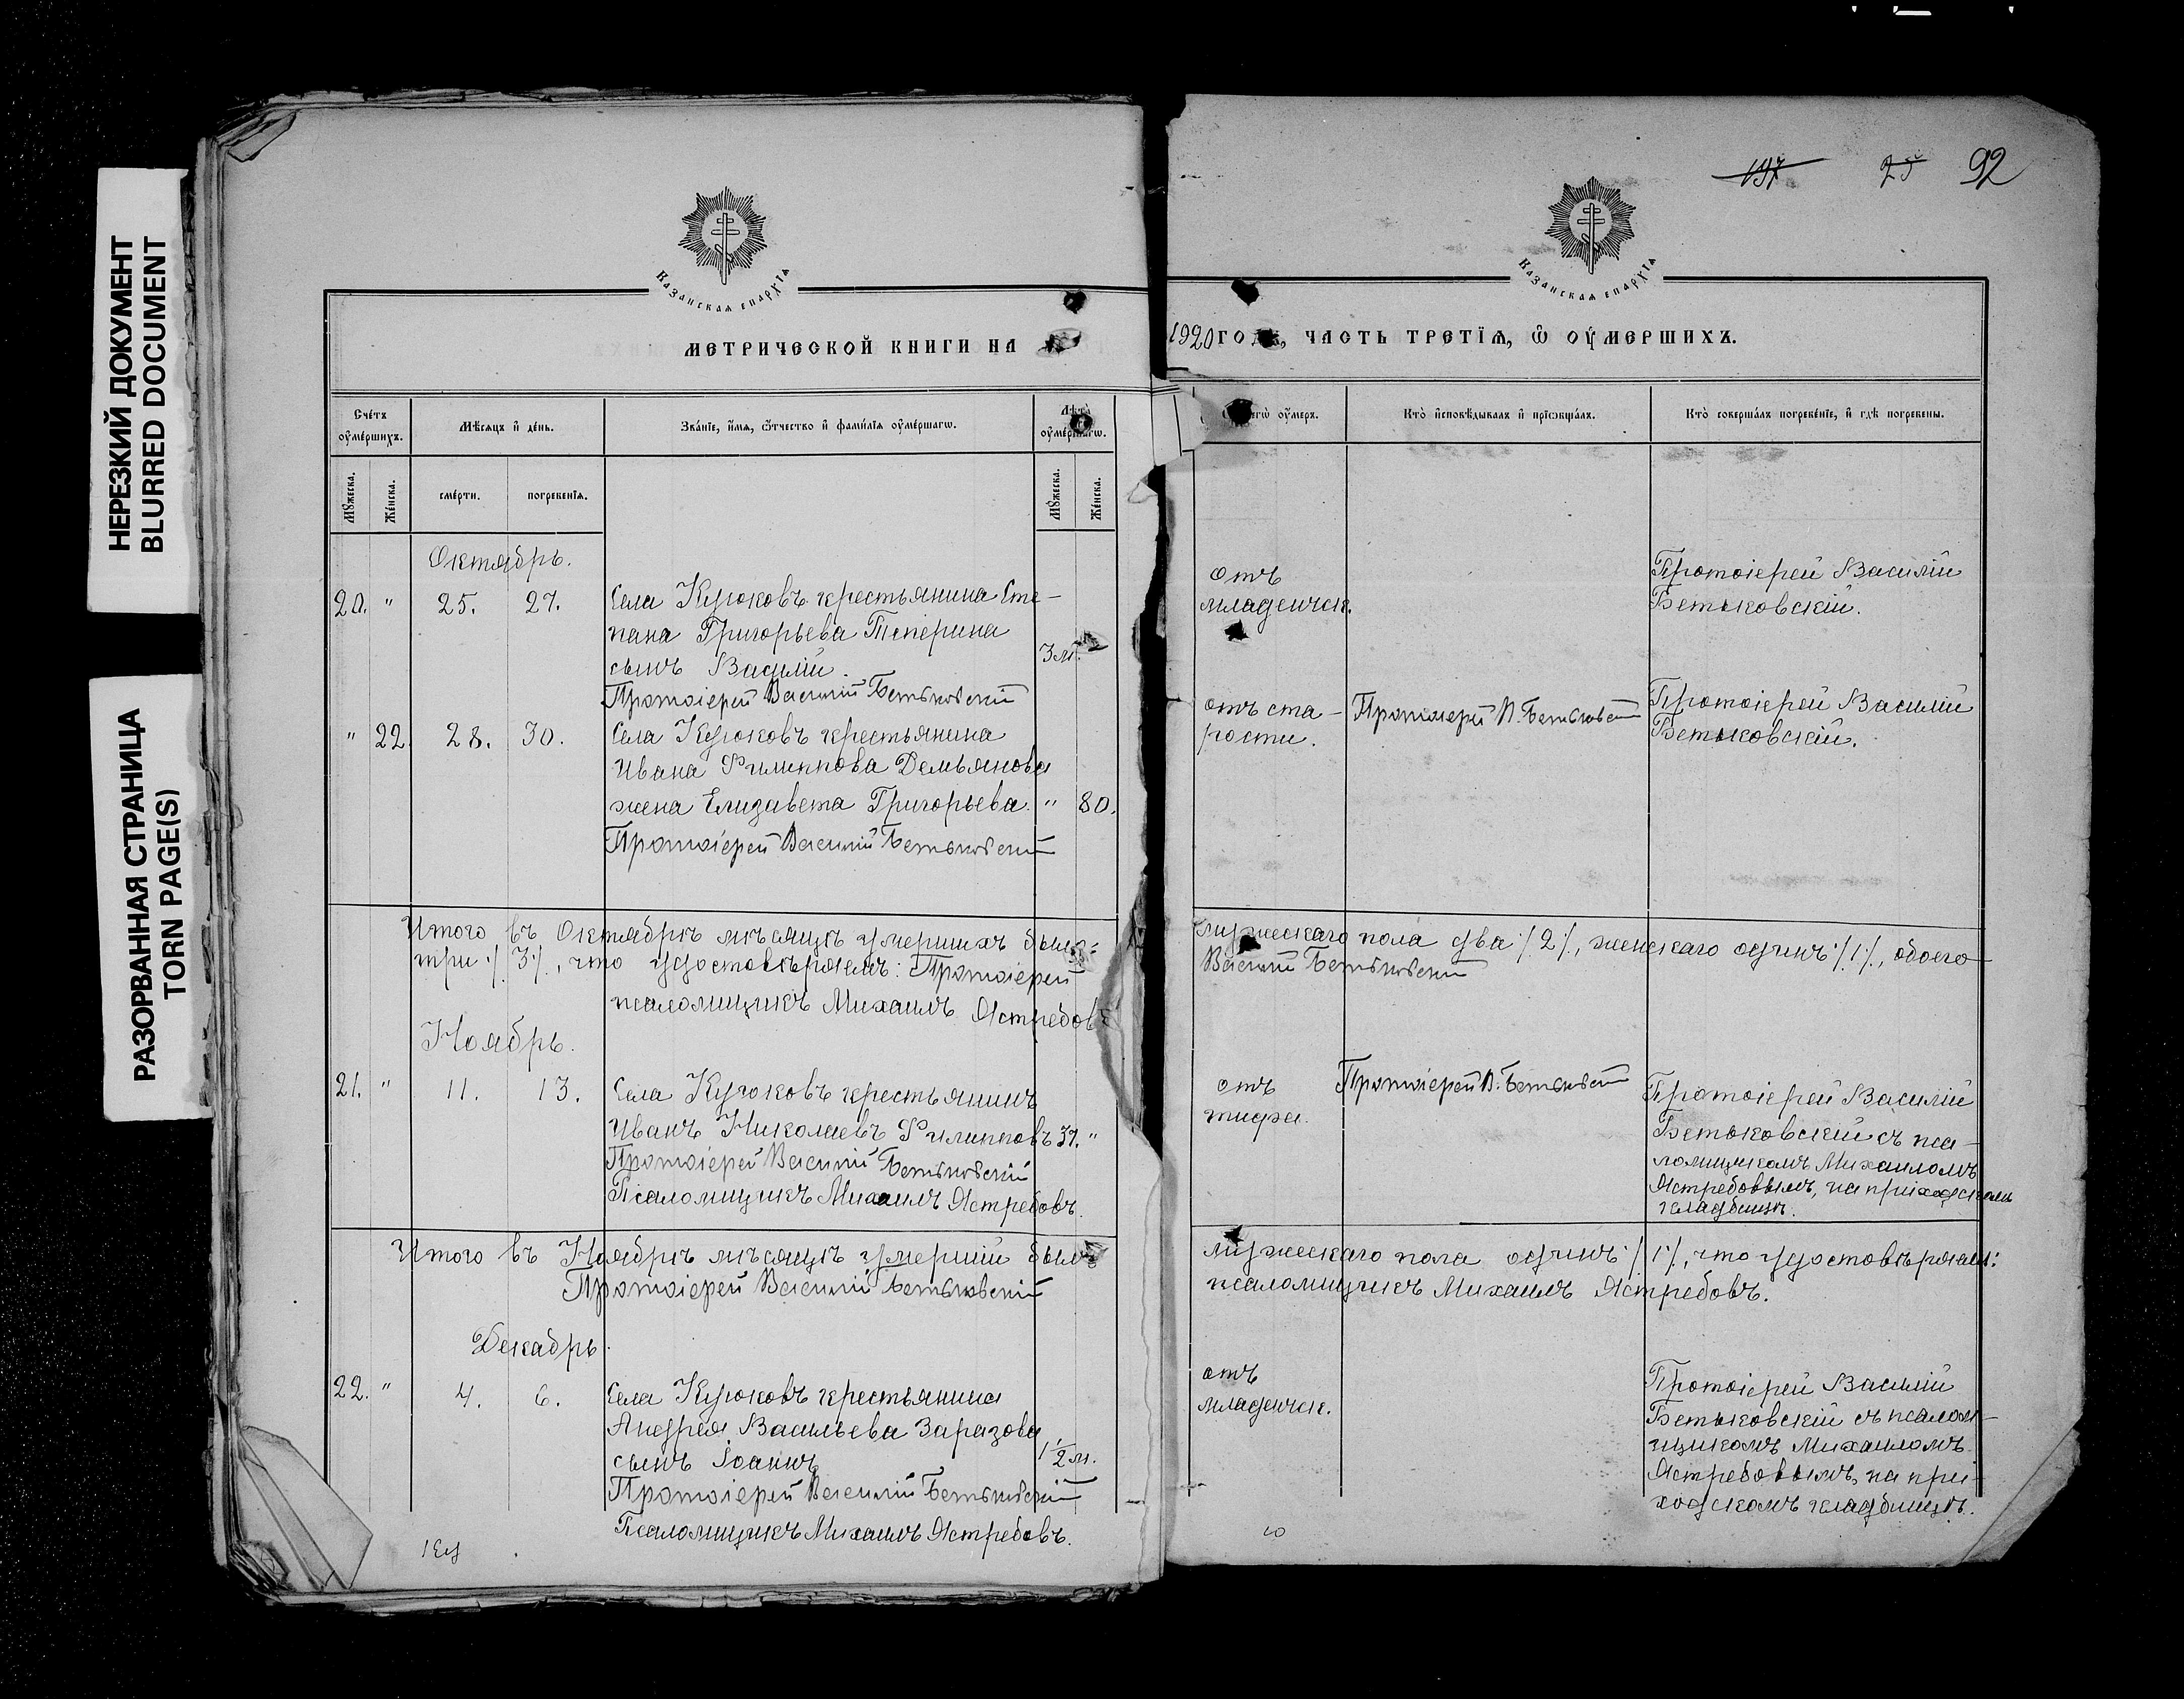 НЕРЕЗКИЙ ДОКУМЕНТ
BLURRED DOCUMENT
РАЗОРВАННАЯ СТРАНИЦА
TORN PAGE(S)
197 25 92
Казанская епархія
Казанская епархія
МЕТРИЧЕСКОЙ КНИГИ НА
1920 ГО, ЧАСТЬ ТРЕТІЯ, Ѽ ОУМЕРШИХЪ.
Счетъ оумершихъ.
Мѣсяцъ и день.
Званіе, имя, отчество и фамилія оумершагѡ.
Лѣта оумершагѡ.
оумеръ.
Кто исповѣдывалъ и пріобщалъ.
Кто совершалъ погребеніе, и гдѣ погребены.
Мужеска.
Женска.
смерти.
погребенія.
Мужеска.
Женска.
Октябрь.
20. " 25. 27. Села Куюковъ крестьянина Сте-
пана Григорьева Теперина
сынъ Василій. 3 м.
Протоіерей Василій Бетьковскій
отъ
младенческ.
Протоіерей Василій
Бетьковскій.
" 22. 28. 30. Села Куюковъ крестьянина
Ивана Филиппова Демьянова
жена Елизавета Григорьева. " 80.
Протоіерей Василій Бетьковскій
отъ ста-
рости.
Протоіерей В. Бетьковскій
Протоіерей Василій
Бетьковскій.
Итого въ Октябрѣ мѣсяцѣ умершихъ было: мужескаго пола два /2/, женскаго одинъ /1/, обоего
три /3/, что удостовѣряемъ: Протоіерей Василій Бетьковскій
псаломщикъ Михаилъ Ястребовъ
Ноябрь.
21. " 11. 13. Села Куюковъ крестьянинъ
Иванъ Николаевъ Филипповъ 37. "
Протоіерей Василій Бетьковскій
Псаломщикъ Михаилъ Ястребовъ.
отъ
тифа.
Протоіерей В. Бетьковскій
Протоіерей Василій
Бетьковскій съ пса-
ломщикомъ Михаиломъ
Ястребовымъ, на приходскомъ
кладбищѣ.
Итого въ Ноябрѣ мѣсяцѣ умершій былъ мужескаго пола одинъ /1/, что удостовѣряемъ:
Протоіерей Василій Бетьковскій псаломщикъ Михаилъ Ястребовъ.
Декабрь.
22. " 4. 6. Села Куюковъ крестьянина
Андрея Васильева Заразова
сынъ Іоаннъ 1 1/2 м.
Протоіерей Василій Бетьковскій
Псаломщикъ Михаилъ Ястребовъ.
отъ
младенческ.
Протоіерей Василій
Бетьковскій съ псалом-
щикомъ Михаиломъ
Ястребовымъ, на при-
ходскомъ кладбищѣ.